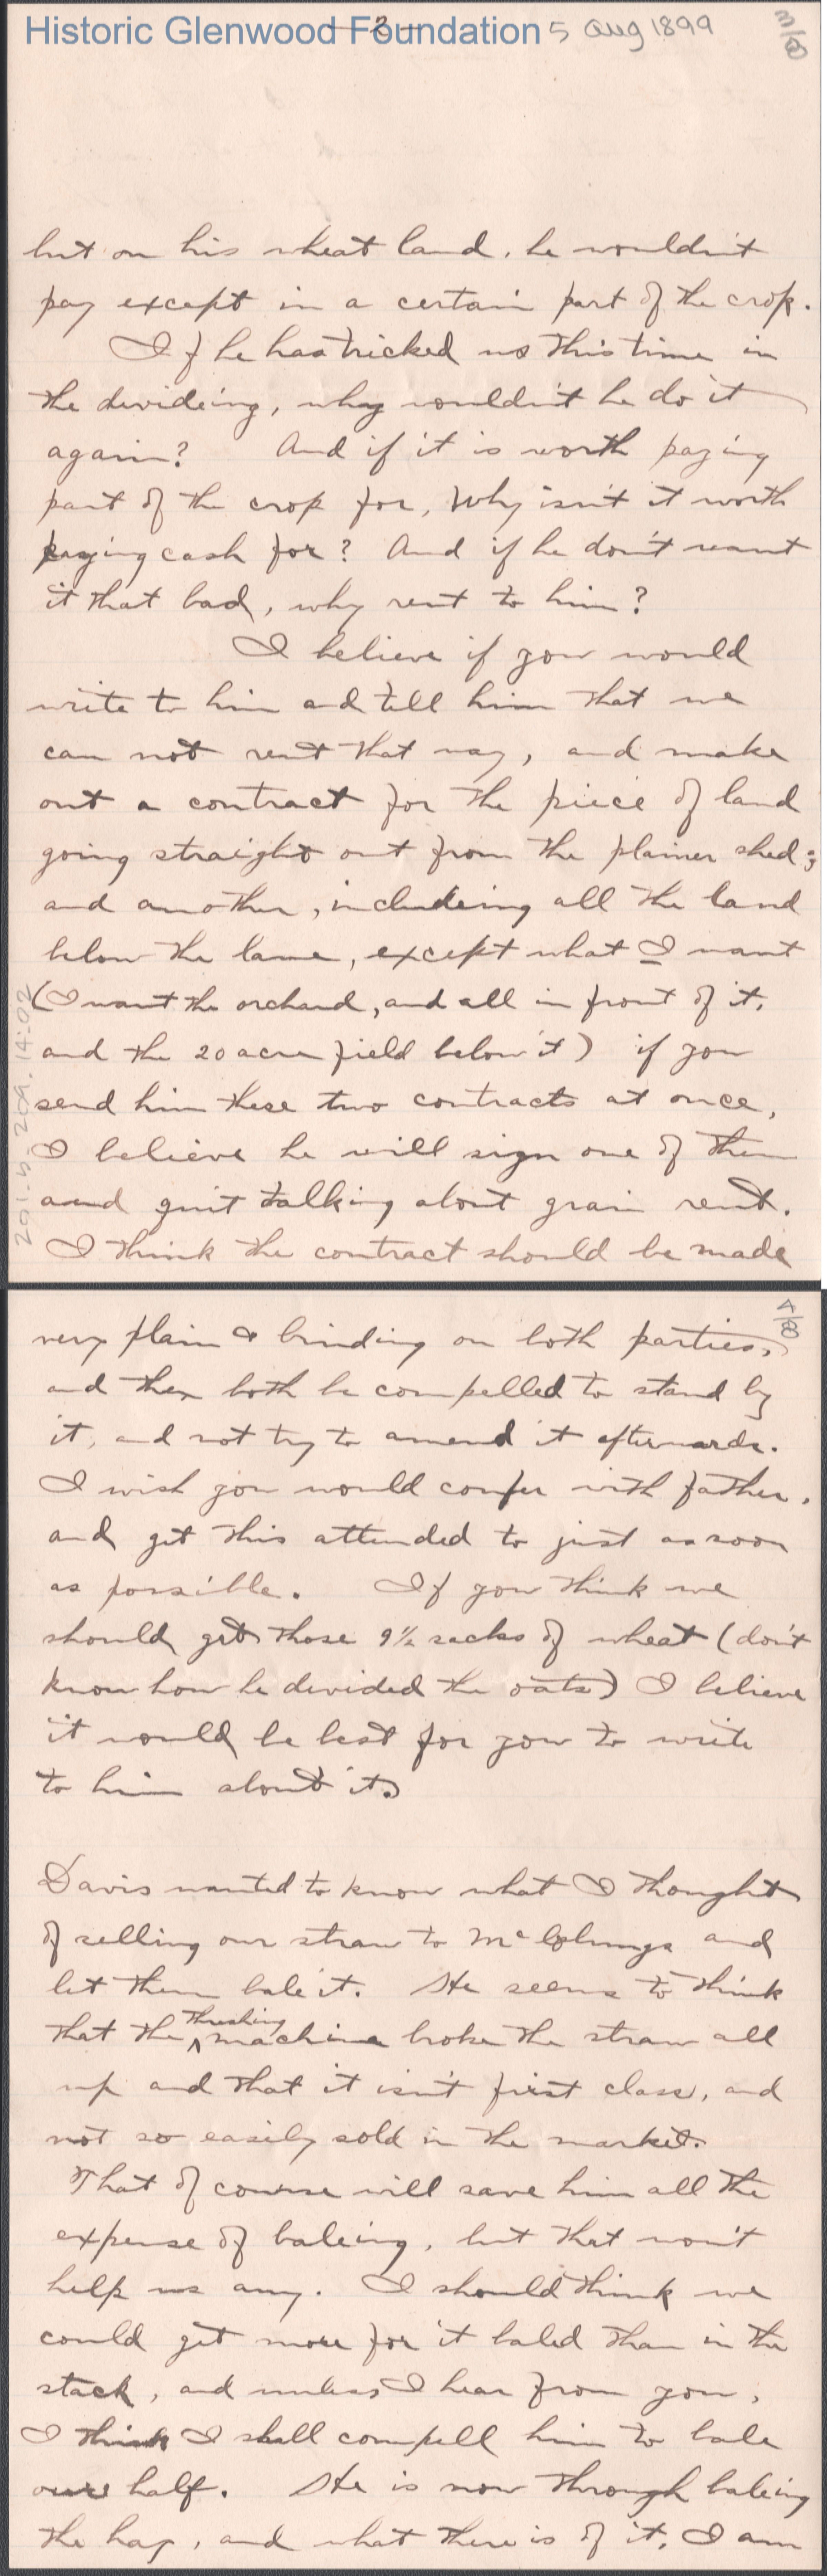 Historic Glenwood Foundation
5 Aug 1899
3/8
but on his wheat land, he wouldn't
pay except in a certain part of the crop.
If he has tricked us this time in
the divideing, why wouldn't he do it
again? And if it is worth paying
part of the crop for, Why isn't it worth
paying cash for? And if he don't want
it that bad, why rent to him?
I believe if you would
write to him and tell him that we
can not rent that way, and make
out a contract for the piece of land
going straight out from the plainer shed;
and another, includeing all the land
below the lane, except what I want
(I want the orchard, and all in front of it,
and the 20 acre field below it) if you
send him these two contracts at once,
I believe he will sign one of them
and quit talking about grain rent.
I think the contract should be made
201.5.209.14:02
4/8
very plain & binding on both parties,
and then both be compelled to stand by
it, and not try to amend it afterwards.
I wish you would confer with father,
and get this attended to just as soon
as possible. If you think we
should get those 9½ sacks of wheat (don't
know how he devided the oats) I believe
it would be best for you to write
to him about it.
Davis wanted to know what I thought
of selling our straw to and
let them bale it. He seems to think
that the threshing machine broke the straw all
up and that it isn't first class, and
not so easily sold in the market.
That of course will save him all the
expense of baleing, but that won't
help us any. I should think we
could get more for it baled than in the
stack, and unless I hear from you,
I think I shall compell him to bale
our half. He is now through baleing
the hay, and what there is of it, I am